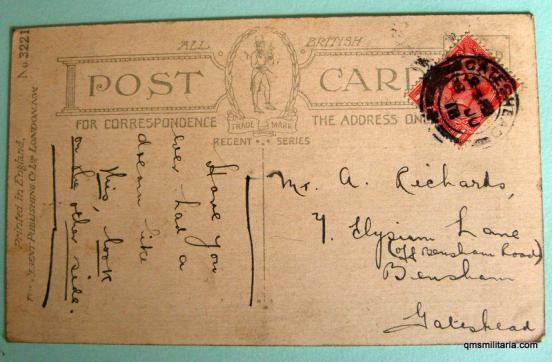 No 3221
Printed in England,
PUBLISHING CO LTD LONDON
ALL BRITISH
POST CARD
FOR CORRESPONDENCE
THE ADDRESS ON
TRADE MARK
REGENT SERIES
Have you
ever had a
dream like
this, look
on the other side.
GATESHEAD
JU
18
Mr. A. Richards,
7. Elysium Lane
(off Bensham Road)
Bensham
Gateshead
qmsmilitaria.com